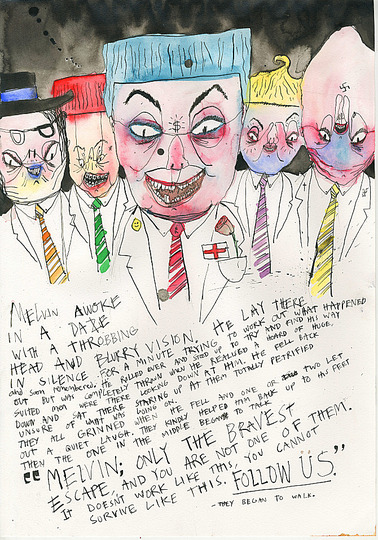 MELVIN AWOKE
IN A DAZE
WITH A THROBBING
HEAD AND BLURRY VISION. HE LAY THERE
IN SILENCE FOR A MINUTE TRYING TO WORK OUT WHAT HAPPENED
and soon remembered. HE ROLLED OVER AND STOOD UP TO TRY AND FIND HIS WAY
OUT BUT WAS COMPLETELY THROWN WHEN HE REALISED A HOARD OF HUGE,
SUITED MEN WERE THERE STARING LOOKING DOWN AT HIM. HE FELL BACK
DOWN AND SAT THERE LOOKING UP AT THEM TOTALLY PETRIFIED
UNSURE OF WHAT WAS GOING ON.
THEY ALL GRINNED WHEN HE FELL AND ONE OR TWO LET
OUT A QUIET LAUGH. THEY KINDLY HELPED HIM BACK UP TO HIS FEET
THEN THE ONE IN THE MIDDLE BEGAN TO TALK
"MELVIN; ONLY THE BRAVEST
ESCAPE, AND YOU ARE NOT ONE OF THEM.
IT DOESNT WORK LIKE THIS, YOU CANNOT
SURVIVE LIKE THIS. FOLLOW US."
- THEY BEGAN TO WALK.